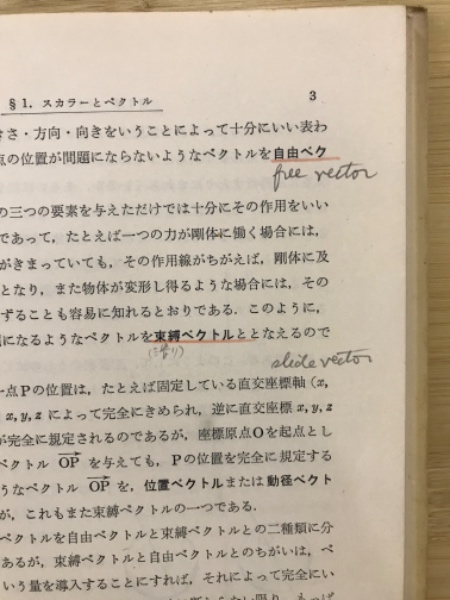 §1. スカラーとベクトル 3
きさ・方向・向きをいうことによって十分にいい表わ
点の位置が問題にならないようなベクトルを自由ベク
free vector
の三つの要素を与えただけでは十分にその作用をいい
であって，たとえば一つの力が剛体に働く場合には，
がきまっていても，その作用線がちがえば，剛体に及
となり，また物体が変形し得るような場合には，その
ずることも容易に知れるとおりである．このように，
になるようなベクトルを束縛ベクトルととなえるので
slide vector
一点Pの位置は，たとえば固定している直交座標軸 (x,
x, y, z によって完全にきめられ，逆に直交座標 x, y, z
が完全に規定されるのであるが，座標原点Oを起点とし
ベクトル OP を与えても，Pの位置を完全に規定する
うなベクトル OP を，位置ベクトルまたは動径ベクト
が，これもまた束縛ベクトルの一つである．
ベクトルを自由ベクトルと束縛ベクトルとの二種類に分
あるが，束縛ベクトルと自由ベクトルとのちがいは，ベ
いう量を導入することにすれば，それによって完全にい